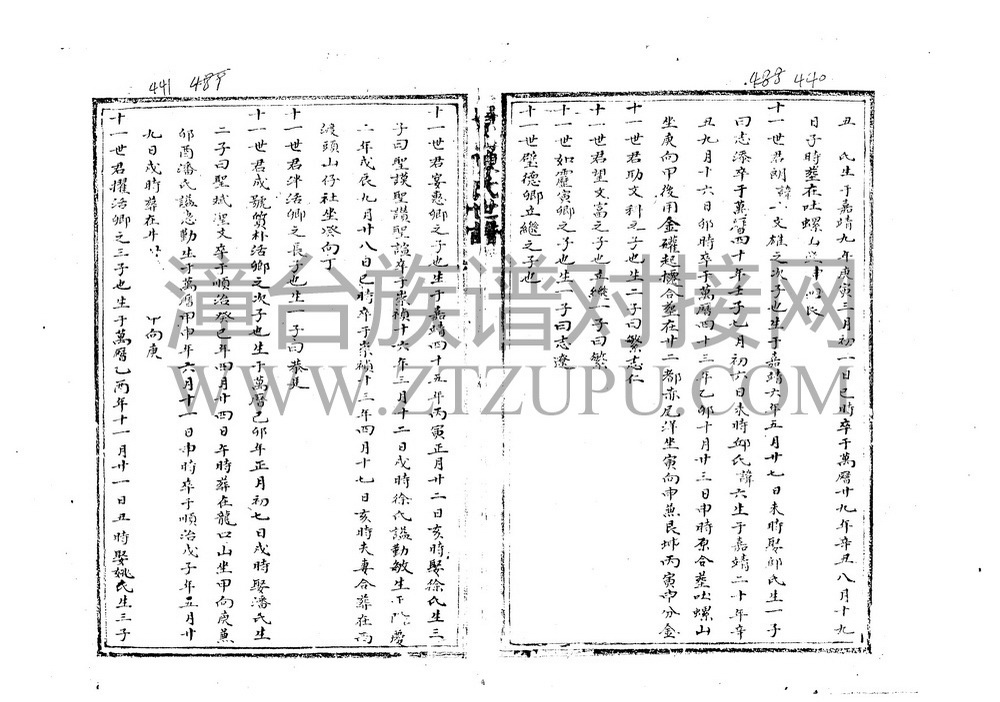 488 440
丑 氏生于嘉靖九年庚寅三月初一日巳時卒于萬曆廿九年辛丑八月十九
日子時葬在吐螺山
十一世君朗諱 文雄之次子也生于嘉靖六年五月廿七日未時娶邱氏生一子
曰志添卒于萬曆四十年壬子七月初六日未時邱氏諱六生于嘉靖二十年辛
丑九月十六日卯時卒于萬曆四十三年乙卯十月廿三日申時原合葬吐螺山
坐庚向甲後用金礶起攄合葬在廿二都赤尾洋坐寅向申兼艮坤丙寅申分金
十一世君助文科之子也生二子曰繁志仁
十一世君望文富之子也立繼一子曰繁
十一世如靈寅卿之子也生一子曰志遼
十一世壁德卿立繼之子也
441 489
十一世君宴惠卿之子也生于嘉靖四十五年丙寅正月廿二日亥時娶徐氏生三
子曰聖謨聖讚聖謚卒于崇禎十六年三月十二日戌時徐氏謚勤敏生于 慶
二年戊辰九月廿八日巳時卒于崇禎十三年四月十七日亥時夫妻合葬在內
渡頭山仔社坐癸向丁
十一世君泮洁卿之長子也生一子曰恭
十一世君成號質朴洁卿之次子也生于萬曆己卯年正月初七日戌時娶潘氏生
二子曰聖斌聖文卒于順治癸巳年四月廿四日午時葬在龍口山坐甲向庚兼
卯酉潘氏謚忠勤生于萬曆甲申年六月十一日申時卒于順治戊子年五月廿
九日戌時葬在 甲向庚
十一世君擢洁卿之三子也生于萬曆乙酉年十一月廿一日丑時娶姚氏生三子
漳台族谱对接网
WWW.ZTZUPU.COM